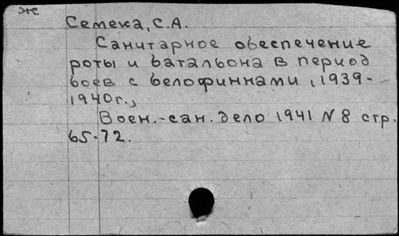 ж
Семека, С.А.
Санитарное обеспечение
роты и батальона в период
боев с белофиннами, 1939-
1940г.,
Воен.-сан. дело 1941 N 8 стр.
65-72.